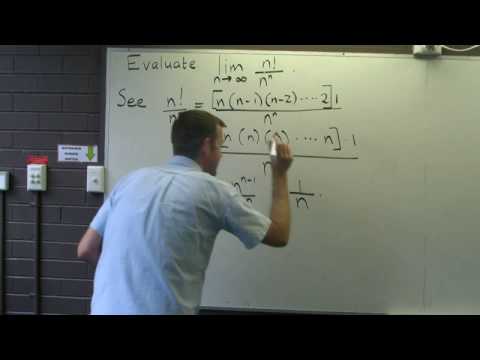 Evaluate lim n→∞ n!/nⁿ .
See n!/n = [n(n-1)(n-2)····2]1/nⁿ
[n (n) ( ) ··· n] · 1
nⁿ⁻¹/n 1/n .